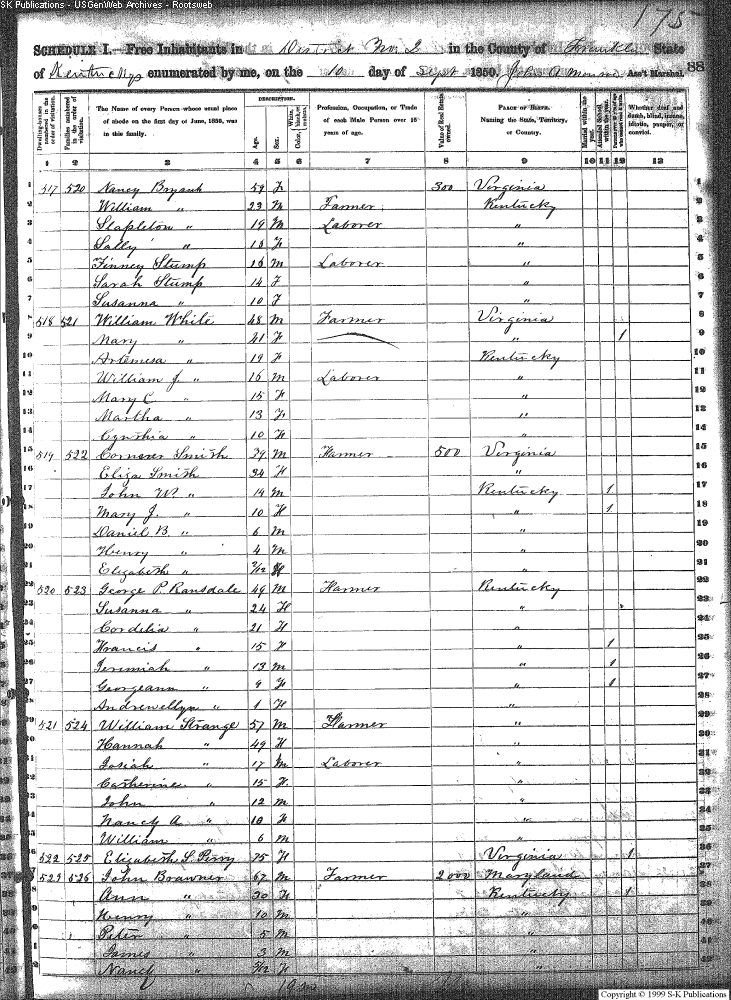 SK Publications - USGenWeb Archives - Rootsweb
175
SCHEDULE I.—Free Inhabitants in District No. 2 in the County of Franklin State
88
of Kentucky enumerated by me, on the 10 day of Sept 1850. John A Ass't Marshal.
Dwelling-houses numbered in the order of visitation.
Families numbered in the order of visitation.
The Name of every Person whose usual place of abode on the first day of June, 1850, was in this family.
DESCRIPTION.
Age.
Sex.
White, black, or mulatto.
Color,
Profession, Occupation, or Trade of each Male Person over 15 years of age.
Value of Real Estate owned.
PLACE OF BIRTH. Naming the State, Territory, or Country.
Married within the year.
Attended School within the year.
Whether deaf and dumb, blind, insane, idiotic, pauper, or convict.
1 2 3 4 5 6 7 8 9 10 11 12 13
1 517 520 Nancy Bryant 59 F 300 Virginia 1
2 William " 23 M Farmer Kentucky 2
3 Stapleton " 19 M Laborer " 3
4 Sally " F " 4
5 Finney Stump 16 M Laborer " 5
6 Sarah Stump 14 F " 6
7 Susanna " 10 F " 7
8 518 521 William White 48 M Farmer Virginia 8
9 Mary " 41 F " 1 9
10 Artemesa " 19 F Kentucky 10
11 William J. " 16 M Laborer " 11
12 Mary C " 15 F " 12
13 Martha " 13 F " 13
14 Cynthia " 10 F " 14
15 519 522 Smith 39 M Farmer 500 Virginia 15
16 Eliza Smith 34 F " 16
17 John W. " 14 M Kentucky 1 17
18 Mary J. " 10 F " 1 18
19 Daniel B. " 6 M " 19
20 Henry " 4 M " 20
21 Elizabeth " F " 21
22 520 523 George P. Ransdale 49 M Farmer Kentucky 22
23 Susanna " 24 F " 23
24 Cordelia " 21 F " 24
25 Francis " 15 F " 1 25
26 Jeremiah " 13 M " 1 26
27 Georgeann " 9 F " 1 27
28 Andrewellyn " 1 F " 28
29 521 524 William Strange 57 M Farmer " 29
30 Hannah " 49 F " 30
31 Josiah " 17 M Laborer " 31
32 Catherine " 15 F " 32
33 John " 12 M " 33
34 Nancy A " 10 F " 34
35 William " 6 M " 35
36 522 525 Elizabeth S. Perry 75 F Virginia 1 36
37 523 526 John Brawner 67 M Farmer 2000 Maryland 37
38 Ann " 30 F Kentucky 1 38
39 Henry " 10 M " 39
40 Peter " 5 M " 40
41 James " 3 M " 41
42 Nancy " F " 42
Copyright © 1999 S-K Publications